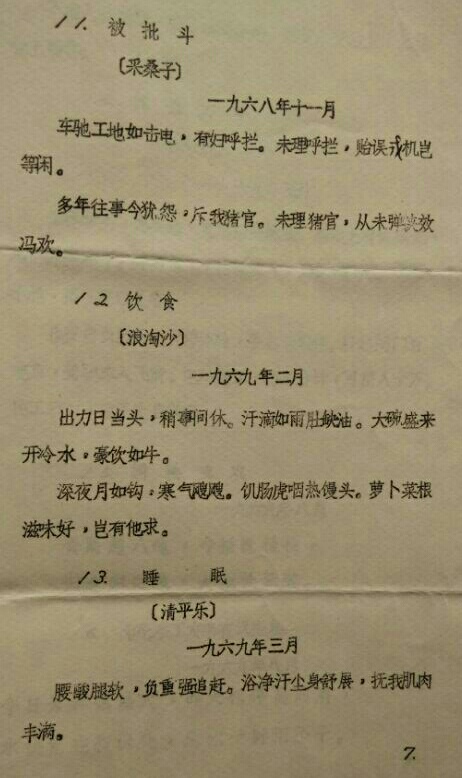 11. 被批斗
〔采桑子〕
一九六八年十一月
车驰工地如击电，有妇呼拦。未理呼拦，贻误戎机岂
等闲。
多年往事今犹怨，斥我猪官。未理猪官，从未弹铗效
冯欢。
12 饮食
〔浪淘沙〕
一九六九年二月
出力日当头，稍事间休。汗滴如雨肚缺油。大碗盛来
开冷水，豪饮如牛。
深夜月如钩，寒气飕飕。饥肠虎咽热馒头。萝卜菜根
滋味好，岂有他求。
13. 睡眠
〔清平乐〕
一九六九年三月
腰酸腿软，负重强追赶。浴净汗尘身舒展，抚我肌肉
丰满。
7.